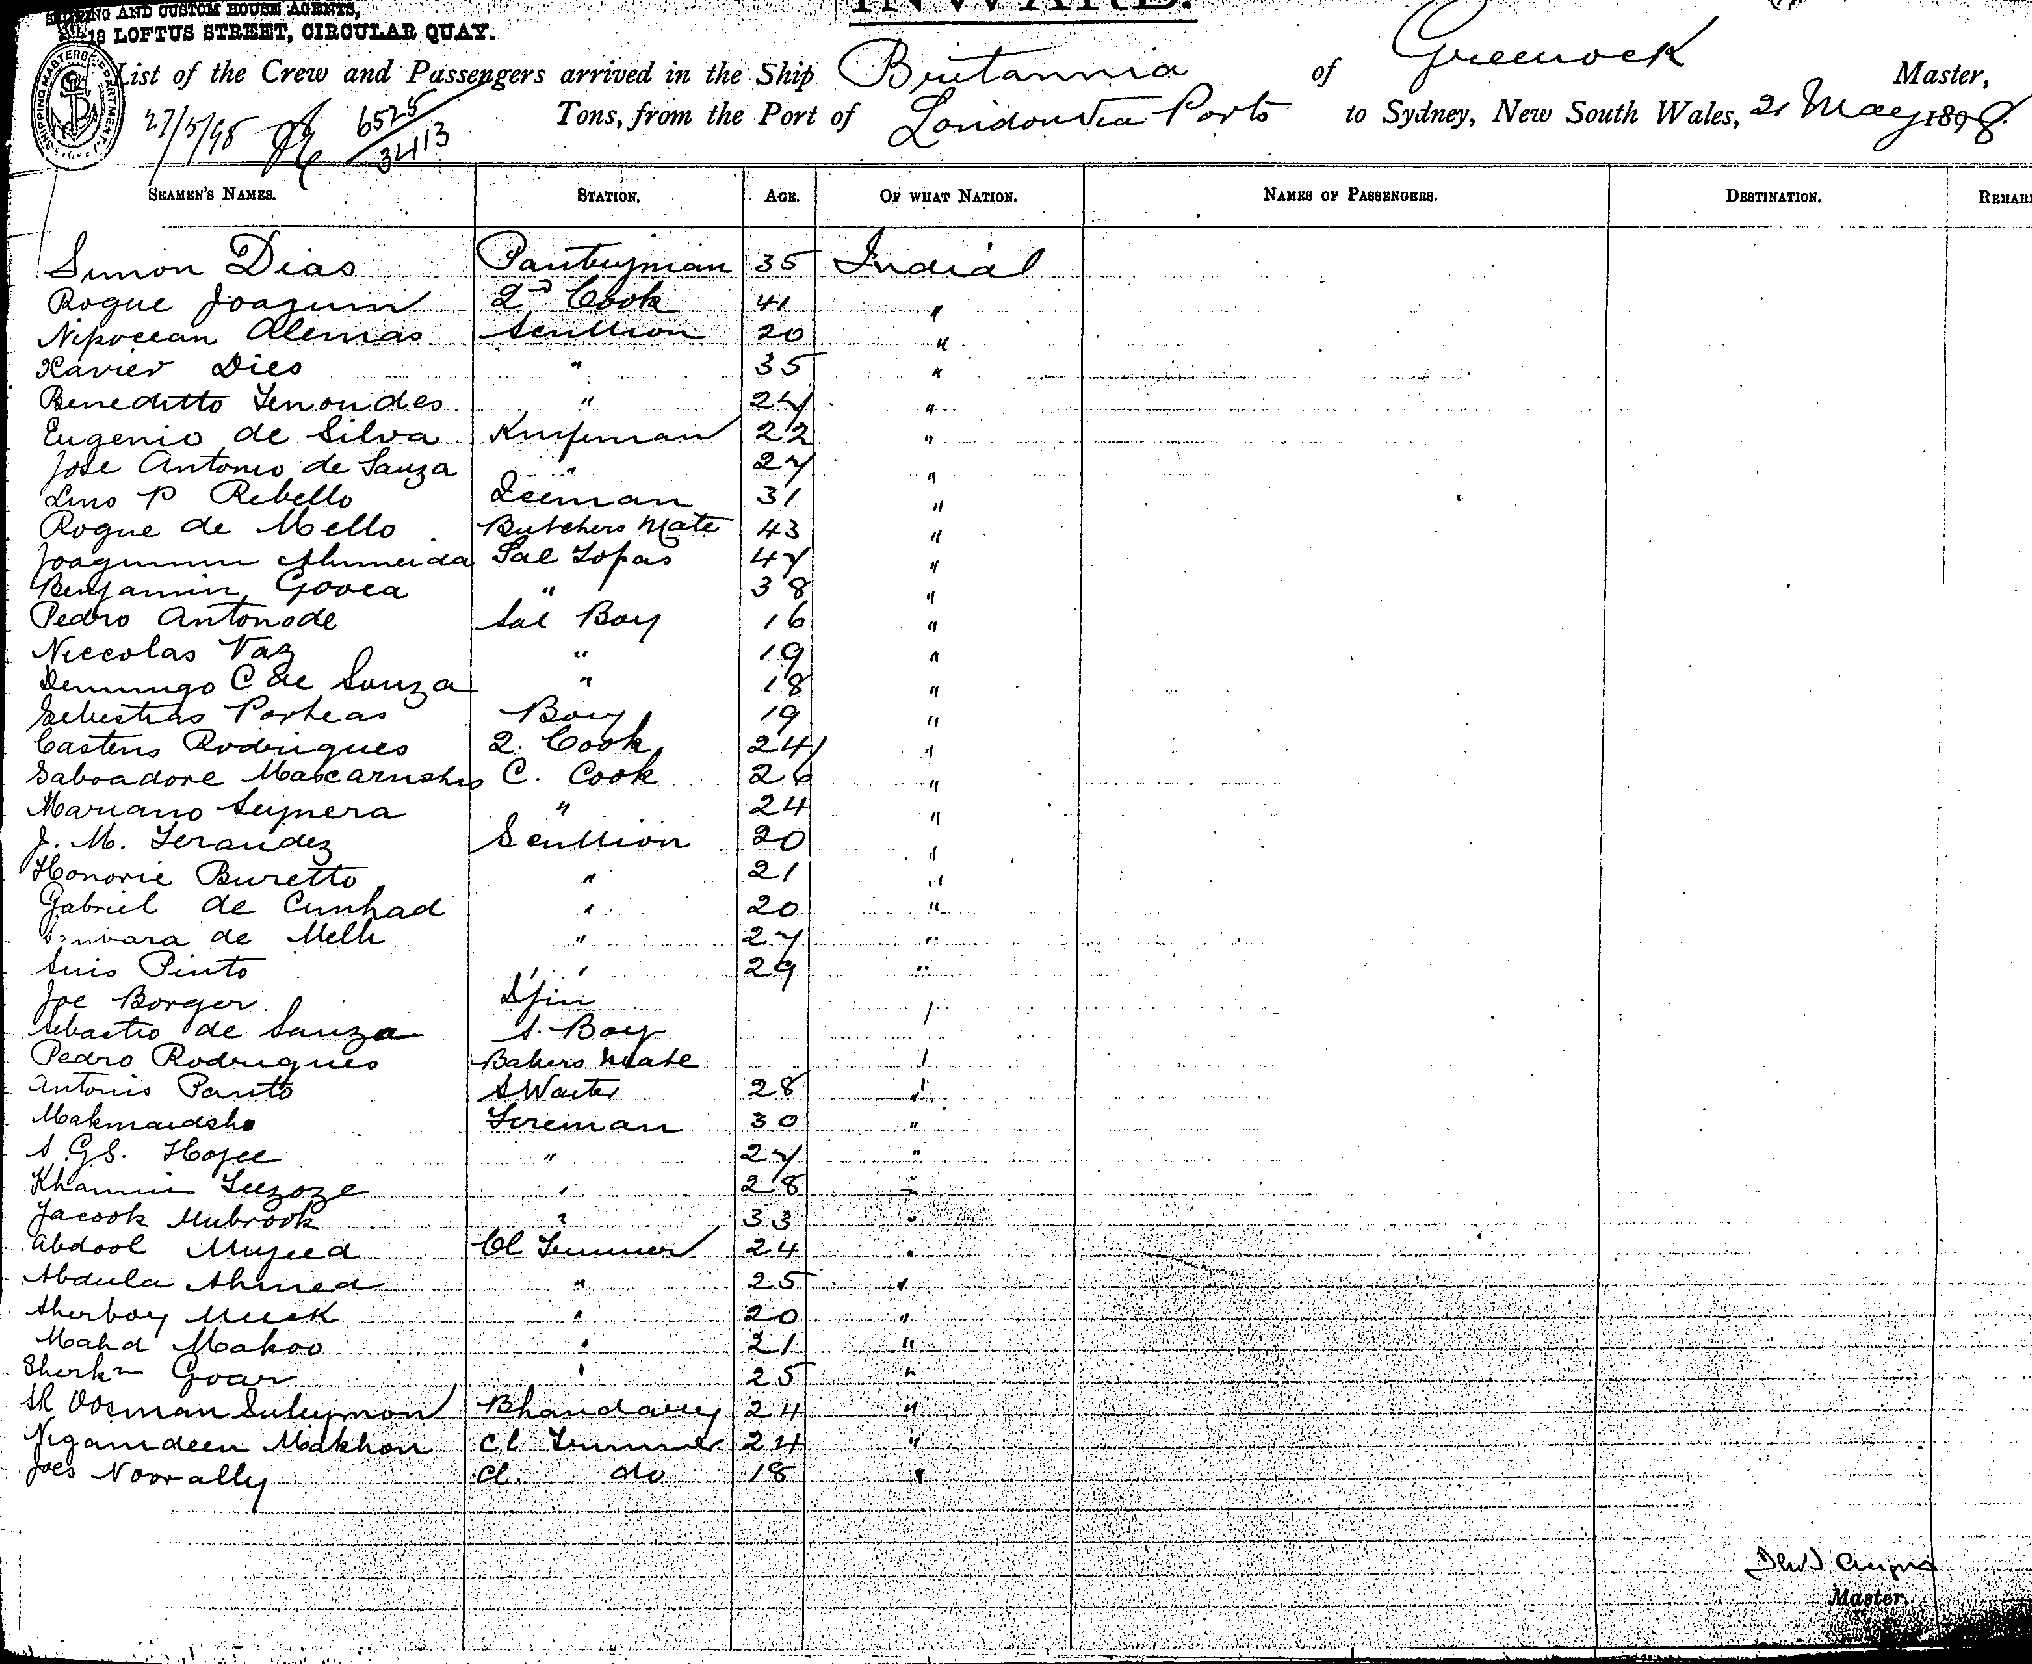 INWARD.
SHIPPING AND CUSTOM HOUSE AGENTS,
18 LOFTUS STREET, CIRCULAR QUAY.
SHIPPING MASTERS DEPARTMENT
List of the Crew and Passengers arrived in the Ship Britannia of Greenock Master,
27/5/98 6525 Tons, from the Port of London via Ports to Sydney, New South Wales, 21 May 1898
3413
SEAMEN'S NAMES. STATION. AGE. OF WHAT NATION. NAMES OF PASSENGERS. DESTINATION.
Simon Dias Pantryman 35 India
Roque Joaquim 2nd Cook 41 "
Nepocean Alemas Scullion 20 "
Xavier Dies " 35 "
Beneditto Fenondes " 27 "
Eugenio de Silva Knifeman 22 "
Jose Antonio de Sauza " 27 "
Lino P Rebello Iceman 31 "
Roque de Mello Butchers Mate 43 "
Joaquimm Almeida Sal Topas 47 "
Benjamin Govea " 38 "
Pedro Antonode Sal Boy 16 "
Niccolas Vaz " 19 "
Demmingo C de Souza " 18 "
Sebestias Porteas Boy 19 "
Castens Rodrigues 2. Cook 24 "
Saboadore Mascarnehs C. Cook 26 "
Mariano " 24 "
J. M. Ferandez Scullion 20 "
Honorie Buretto " 21 "
Gabriel de Cunhad " 20 "
de Mello " 27 "
Luis Pinto " 29 "
Joe Borger "
Sebastio de Sauza S. Boy
Pedro Rodrigues Bakers Mate "
Antonis Panto S Waiter 28 "
Makmaidsho Fireman 30 "
S. G. S. Hojee " 27 "
Khamin Feezoze " 28 "
Jacook Mubrook " 33 "
Abdool Mujeed Cl Trimmer 24 "
Abdula Ahmed " 25 "
Sherboy Meek " 20 "
Mahd Makoo " 21 "
Sherkn Goar " 25 "
Sk Oosman Suleymon Bhandarry 24 "
Nigamdeen Makhon Cl Trimmer 24 "
Joes Noorally Cl. do 18 "
Master.